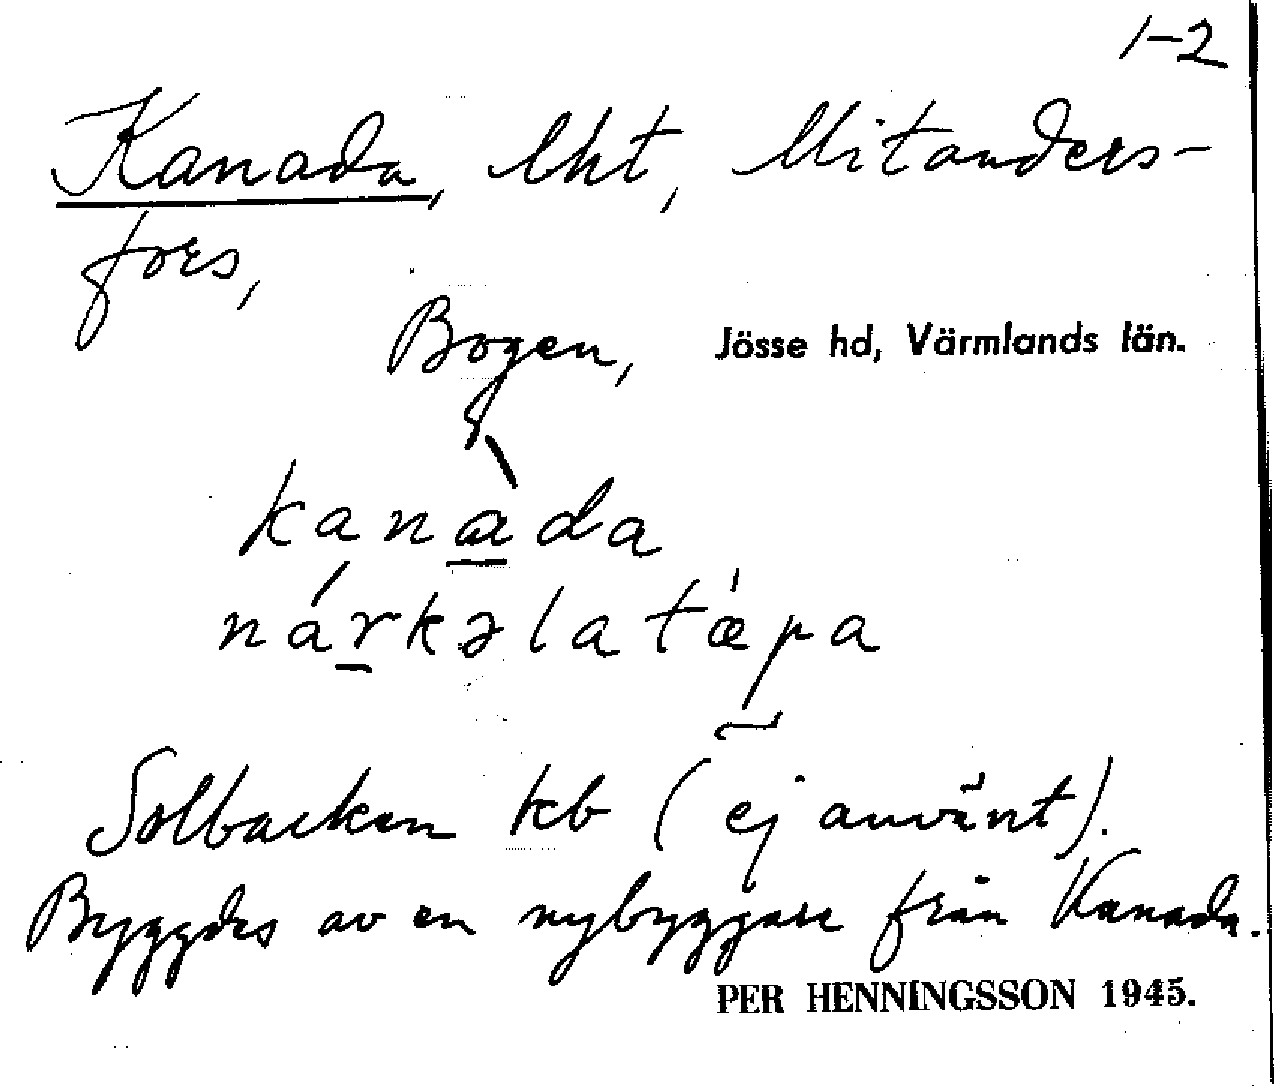 1-2
Kanada, lht, Mitanders-
fors,
Bogen, Jösse hd, Värmlands län.
kanàda
nárkəlatǽpa
Solbacken kb (ej använt).
Byggdes av en nybyggare från Kanada.
PER HENNINGSSON 1945.